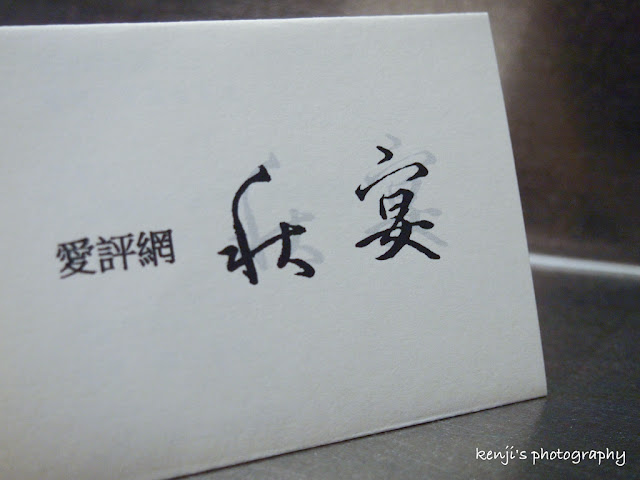 愛評網 秋宴
kenji's photography